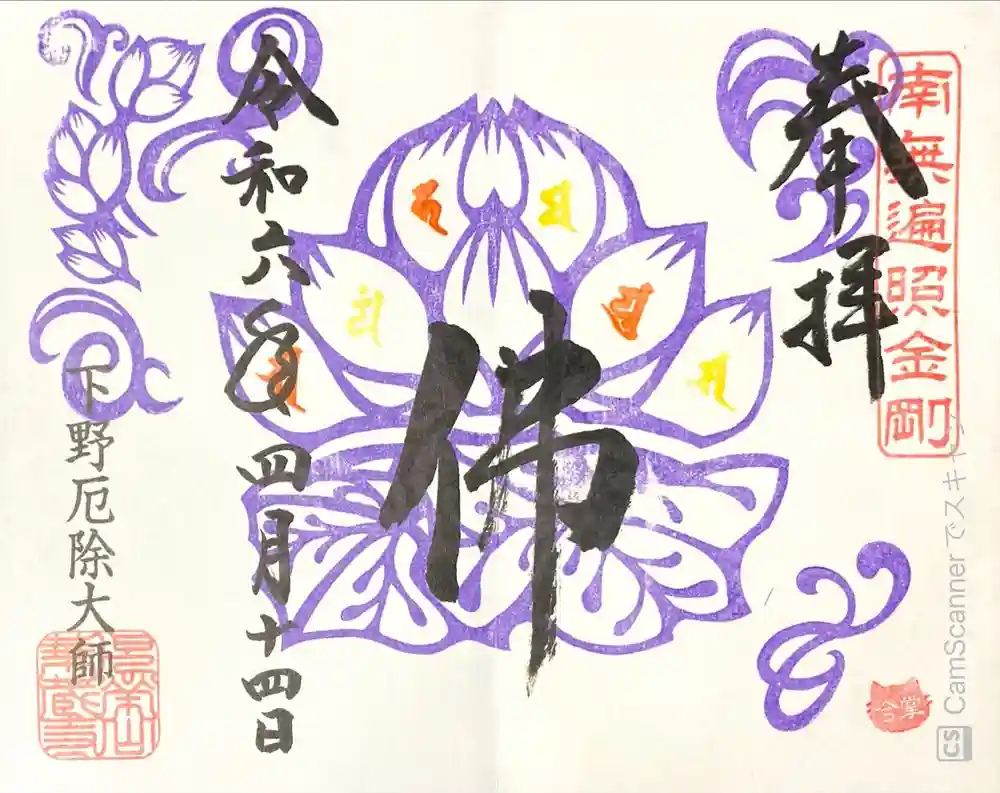 南無遍照金剛
奉拝
佛
令和六年四月十四日
下野厄除大師
合掌
CS CamScannerでスキャン